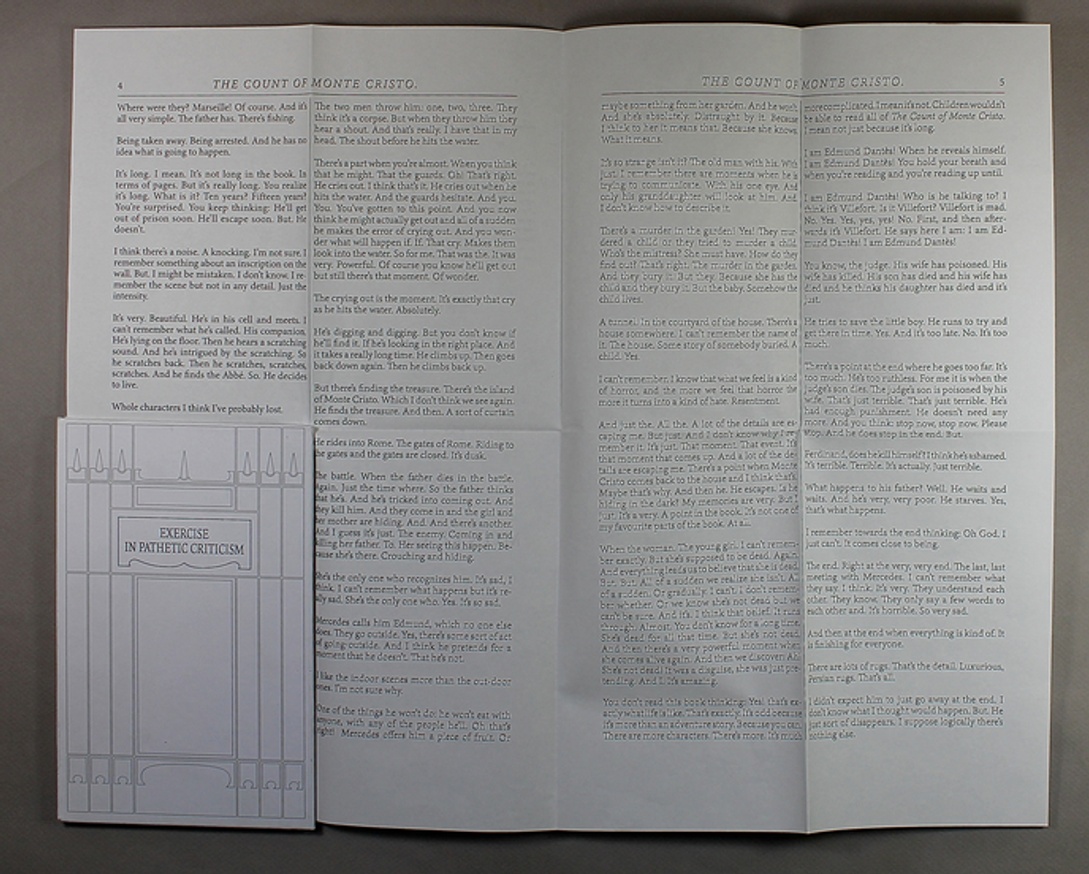 4
THE COUNT OF MONTE CRISTO.
Where were they? Marseille! Of course. And it's
all very simple. The father has. There's fishing.
Being taken away. Being arrested. And he has no
idea what is going to happen.
It's long. I mean. It's not long in the book. In
terms of pages. But it's really long. You realize
it's long. What is it? Ten years? Fifteen years?
You're surprised. You keep thinking: He'll get
out of prison soon. He'll escape soon. But. He
doesn't.
I think there's a noise. A knocking. I'm not sure. I
remember something about an inscription on the
wall. But. I might be mistaken. I don't know. I re-
member the scene but not in any detail. Just the
intensity.
It's very. Beautiful. He's in his cell and meets. I
can't remember what he's called. His companion.
He's lying on the floor. Then he hears a scratching
sound. And he's intrigued by the scratching. So
he scratches back. Then he scratches, scratches,
scratches. And he finds the Abbé. So. He decides
to live.
Whole characters I think I've probably lost.
EXERCISE
IN PATHETIC CRITICISM
The two men throw him: one, two, three. They
think it's a corpse. But when they throw him they
hear a shout. And that's really. I have that in my
head. The shout before he hits the water.
There's a part when you're almost. When you think
that he might. That the guards. Oh! That's right.
He cries out. I think that's it. He cries out when he
hits the water. And the guards hesitate. And you.
You. You've gotten to this point. And you now
think he might actually get out and all of a sudden
he makes the error of crying out. And you won-
der what will happen if. If. That cry. Makes them
look into the water. So for me. That was the. It was
very. Powerful. Of course you know he'll get out
but still there's that moment. Of wonder.
The crying out is the moment. It's exactly that cry
as he hits the water. Absolutely.
He's digging and digging. But you don't know if
he'll find it. If he's looking in the right place. And
it takes a really long time. He climbs up. Then goes
back down again. Then he climbs back up.
But there's finding the treasure. There's the island
of Monte Cristo. Which I don't think we see again.
He finds the treasure. And then. A sort of curtain
comes down.
He rides into Rome. The gates of Rome. Riding to
the gates and the gates are closed. It's dusk.
The battle. When the father dies in the battle.
Again. Just the time where. So the father thinks
that he's. And he's tricked into coming out. And
they kill him. And they come in and the girl and
her mother are hiding. And. And there's another.
And I guess it's just. The enemy. Coming in and
killing her father. To. Her seeing this happen. Be-
cause she's there. Crouching and hiding.
She's the only one who recognizes him. It's sad, I
think. I can't remember what happens but it's re-
ally sad. She's the only one who. Yes. It's so sad.
Mercedes calls him Edmund, which no one else
does. They go outside. Yes, there's some sort of act
of going outside. And I think he pretends for a
moment that he doesn't. That he's not.
I like the indoor scenes more than the out-door
ones. I'm not sure why.
One of the things he won't do: he won't eat with
anyone, with any of the people he'll. Oh that's
right! Mercedes offers him a piece of fruit. Or
THE COUNT OF MONTE CRISTO.
5
maybe something from her garden. And he won't.
And she's absolutely. Distraught by it. Because
I think to her it means that. Because she knows.
What it means.
It's so strange isn't it? The old man with his. With
just. I remember there are moments when he is
trying to communicate. With his one eye. And
only his granddaughter will look at him. And
I don't know how to describe it.
There's a murder in the garden! Yes! They mur-
dered a child or they tried to murder a child.
Who's the mistress? She must have. How do they
find out? That's right. The murder in the garden.
And they bury it. But they. Because she has the
child and they bury it. But the baby. Somehow the
child lives.
A tunnel! In the courtyard of the house. There's a
house somewhere. I can't remember the name of
it. The house. Some story of somebody buried. A
child. Yes.
I can't remember. I know that what we feel is a kind
of horror, and the more we feel that horror the
more it turns into a kind of hate. Resentment.
And just the. All the. A lot of the details are es-
caping me. But just. And I don't know why I re-
member it. It's just. That moment. That event. It's
that moment that comes up. And a lot of the de-
tails are escaping me. There's a point when Monte
Cristo comes back to the house and I think that's.
Maybe that's why. And then he. He escapes. Is he
hiding in the dark? My memories are very. But I
just. It's a very. A point in the book. It's not one of
my favourite parts of the book. At all.
When the woman. The young girl. I can't remem-
ber her exactly. But she's supposed to be dead. Again.
And everything leads us to believe that she is dead.
But. But. All of a sudden we realize she isn't. All
of a sudden. Or gradually. I can't. I don't remem-
ber whether. Or we know she's not dead but we
can't be sure. And it's. I think that belief. It runs
through. Almost. You don't know for a long time.
She's dead for all that time. But she's not dead.
And then there's a very powerful moment when
she comes alive again. And then we discover: Ah!
She's not dead! It was a disguise, she was just pre-
tending. And I. It's amazing.
You don't read this book thinking: Yes! that's ex-
actly what life is like. That's exactly. It's odd because
it's more than an adventure story. Because you can.
There are more characters. There's more. It's much
more complicated. I mean it's not. Children wouldn't
be able to read all of The Count of Monte Cristo.
I mean not just because it's long.
I am Edmund Dantès! When he reveals himself.
I am Edmund Dantès! You hold your breath and
when you're reading and you're reading up until.
I am Edmund Dantès! Who is he talking to? I
think it's Villefort. Is it Villefort? Villefort is mad.
No. Yes. Yes, yes, yes! No. First, and then after-
wards it's Villefort. He says here I am: I am Ed-
mund Dantès! I am Edmund Dantès!
You know, the judge. His wife has poisoned. His
wife has killed. His son has died and his wife has
died and he thinks his daughter has died and it's
just.
He tries to save the little boy. He runs to try and
get there in time. Yes. And it's too late. No. It's too
much.
There's a point at the end where he goes too far. It's
too much. He's too ruthless. For me it is when the
judge's son dies. The judge's son is poisoned by his
wife. That's just terrible. That's just terrible. He's
had enough punishment. He doesn't need any
more. And you think: stop now, stop now. Please
stop. And he does stop in the end. But.
Ferdinand, does he kill himself? I think he's ashamed.
It's terrible. Terrible. It's actually. Just terrible.
What happens to his father? Well. He waits and
waits. And he's very, very poor. He starves. Yes,
that's what happens.
I remember towards the end thinking: Oh God. I
just can't. It comes close to being.
The end. Right at the very, very end. The last, last
meeting with Mercedes. I can't remember what
they say. I think. It's very. They understand each
other. They know. They only say a few words to
each other and. It's horrible. So very sad.
And then at the end when everything is kind of. It
is finishing for everyone.
There are lots of rugs. That's the detail. Luxurious,
Persian rugs. That's all.
I didn't expect him to just go away at the end. I
don't know what I thought would happen. But. He
just sort of disappears. I suppose logically there's
nothing else.